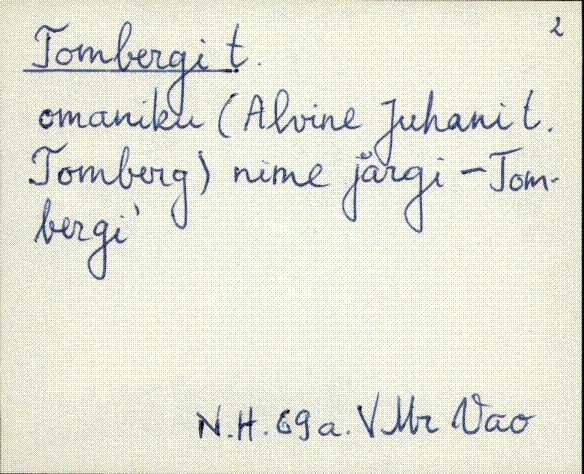 2
Tombergi t.
omaniku (Alvine Juhani t.
Tomberg) nime järgi - Tom-
bergi'
N.H. 69 a. VMr Vao